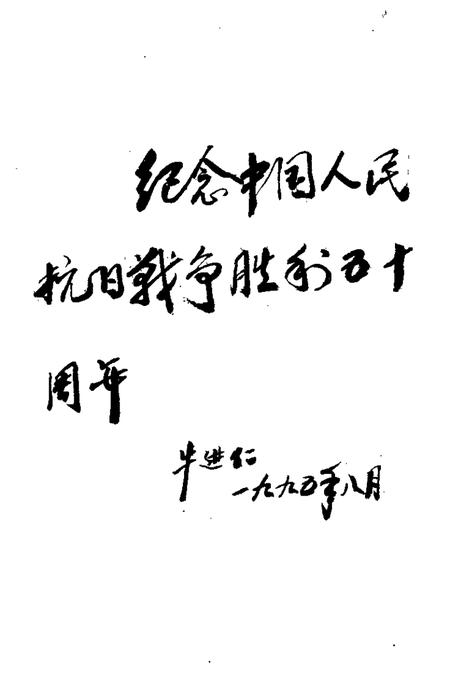 纪念中国人民
抗日战争胜利五十
周年
牛进仁
一九九五年八月